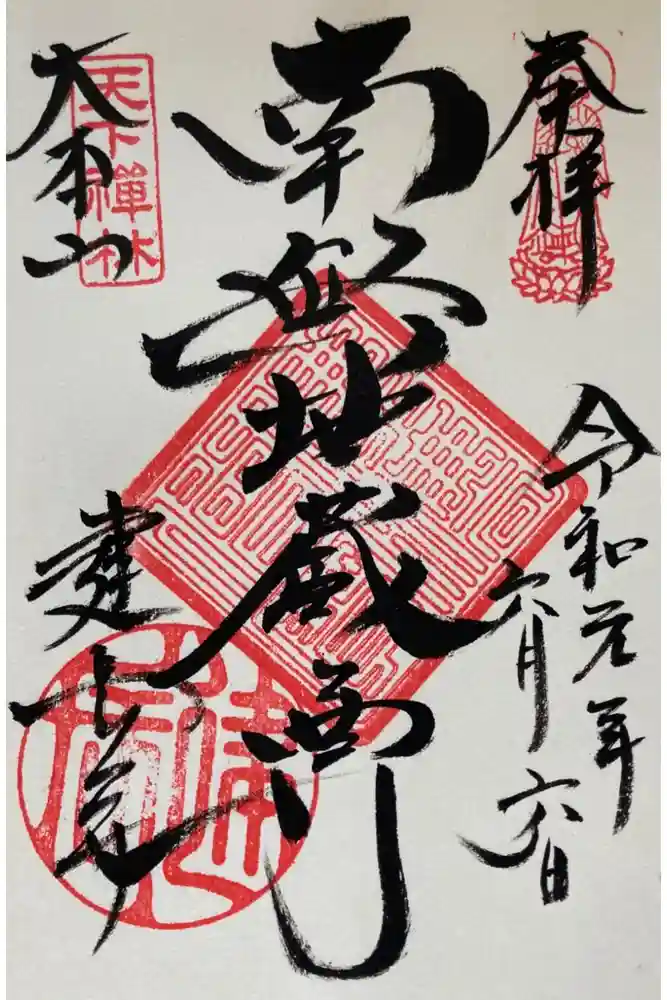 奉拝
令和元年
六月六日
南無地蔵尊
大本山
天下禪林
建長寺